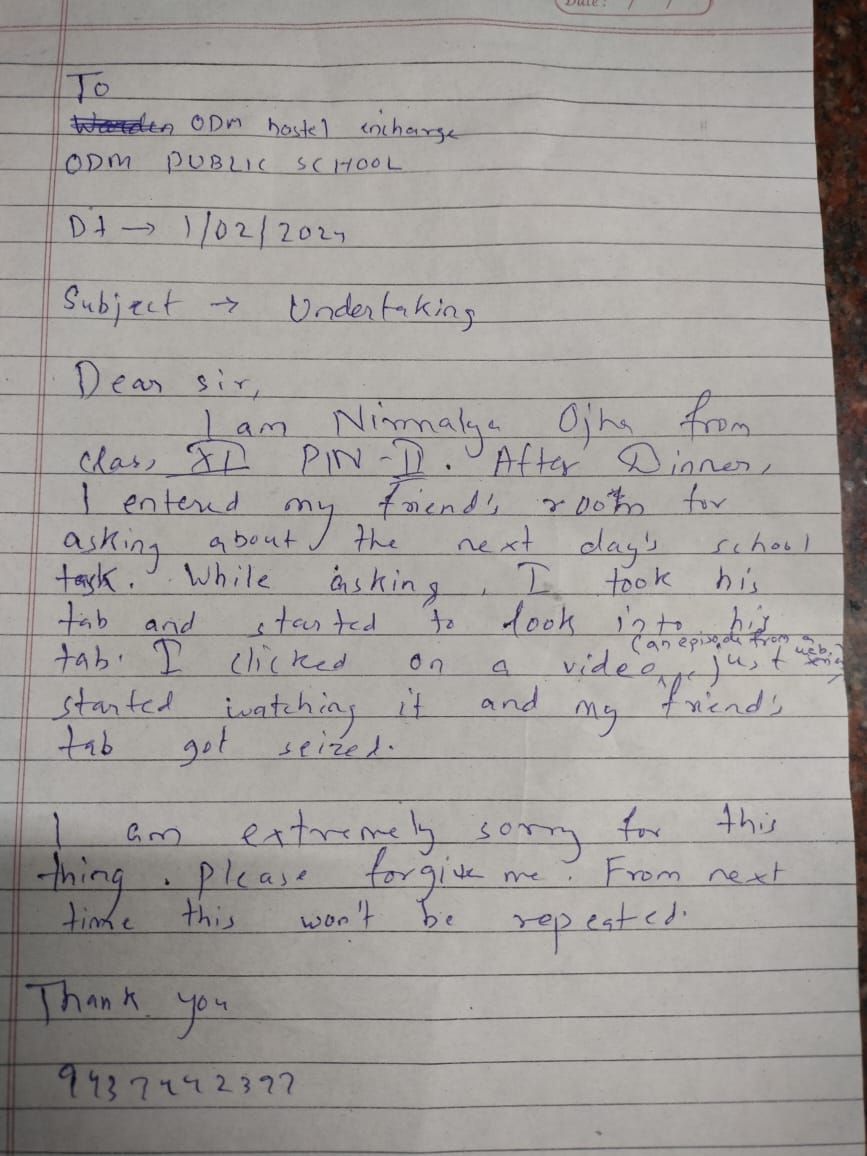 Date: / /
To
Warden ODM hostel incharge
ODM PUBLIC SCHOOL
Dt → 1/02/2024
Subject → Undertaking
Dear sir,
I am Nirmalya Ojha from
class XI PIN-II. After Dinner,
I entered my friend's room for
asking about the next day's school
task. While asking, I took his
tab and started to look into his
(an episode from a web series)
tab. I clicked on a video, just
started watching it and my friend's
tab got seized.
I am extremely sorry for this
thing. Please forgive me. From next
time this won't be repeated.
Thank you